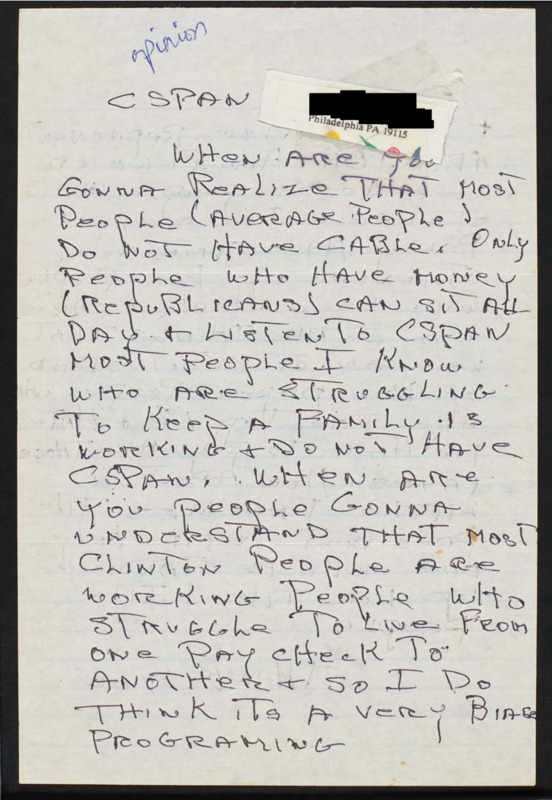 opinion
CSPAN
Philadelphia PA 19115
WHEN ARE YOU
GONNA REALIZE THAT MOST
PEOPLE (AVERAGE PEOPLE)
DO NOT HAVE CABLE. ONLY
PEOPLE WHO HAVE MONEY
(REPUBLICANS) CAN SIT ALL
DAY & LISTEN TO CSPAN
MOST PEOPLE I KNOW
WHO ARE STRUGGLING
TO KEEP A FAMILY IS
WORKING & DO NOT HAVE
CSPAN. WHEN ARE
YOU PEOPLE GONNA
UNDERSTAND THAT MOST
CLINTON PEOPLE ARE
WORKING PEOPLE WHO
STRUGGLE TO LIVE FROM
ONE PAY CHECK TO
ANOTHER & SO I DO
THINK ITS A VERY BIASE
PROGRAMING